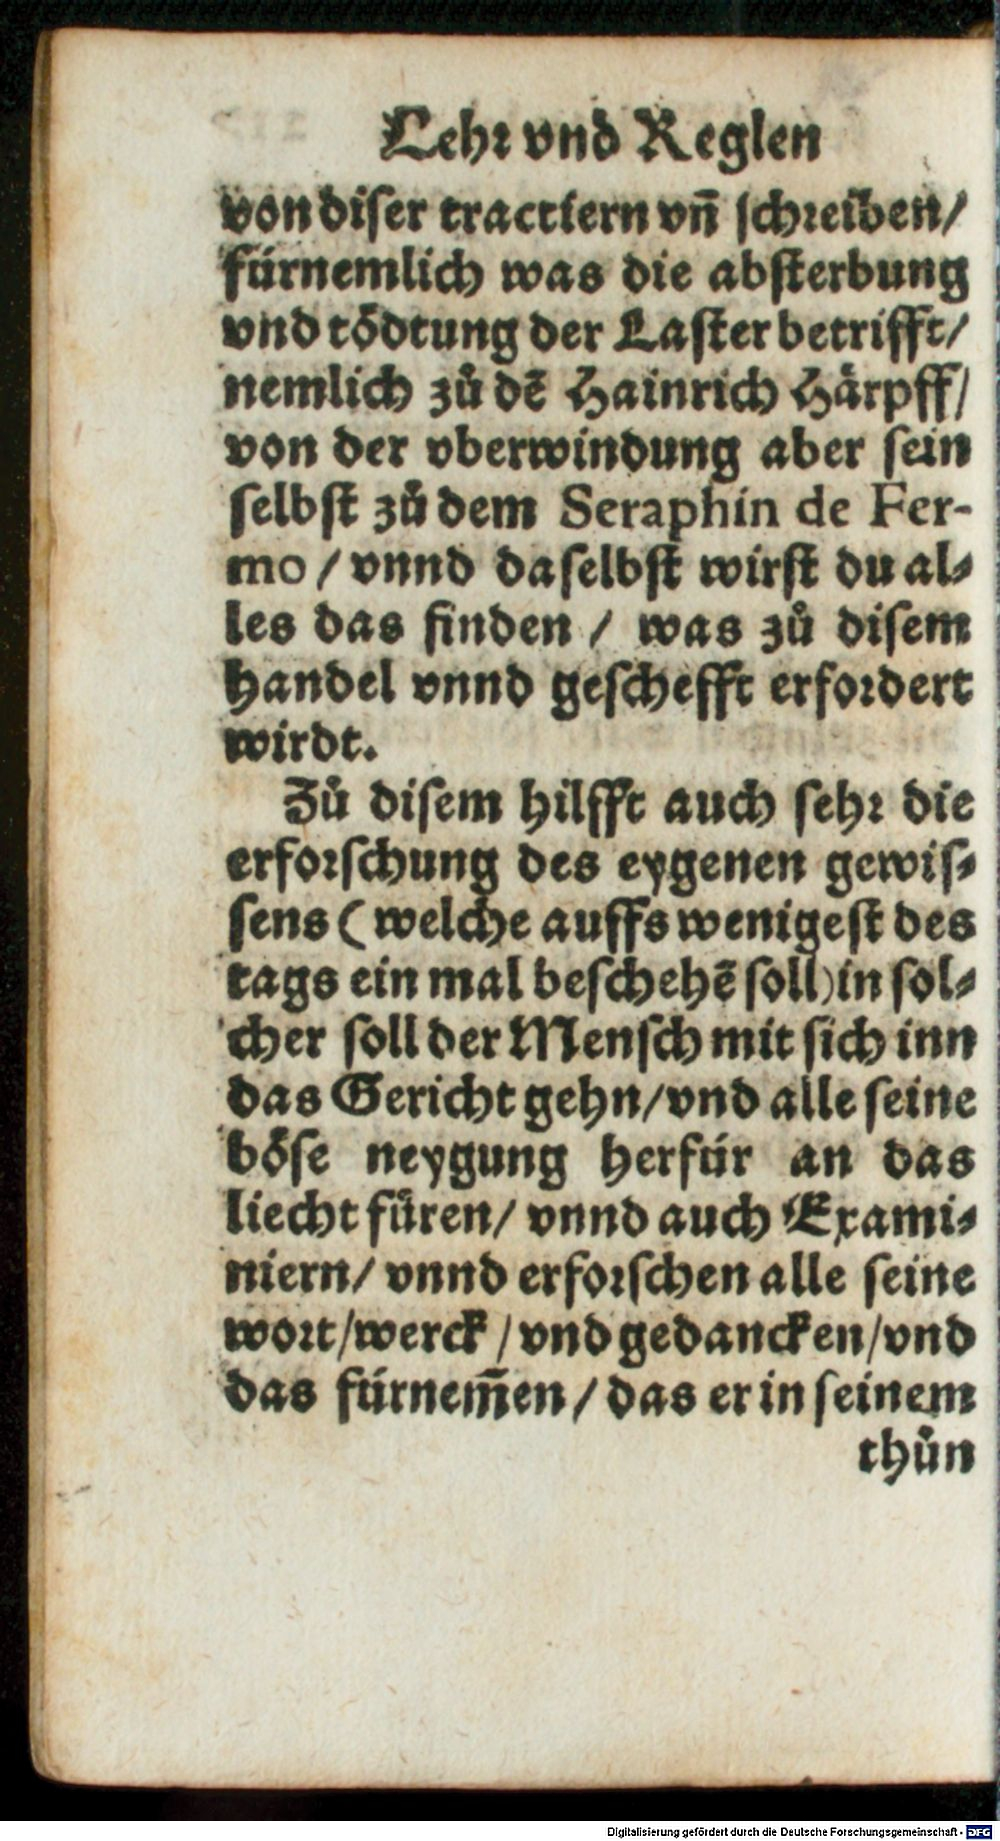 Lehr vnd Reglen
von diser tractiern vñ schreiben/
fürnemlich was die absterbung
vnd tödtung der Laster betrifft/
nemlich zů dẽ Hainrich Härpff/
von der vberwindung aber sein
selbst zů dem Seraphin de Fer-
mo / vnnd daselbst wirst du al-
les das finden / was zů disem
handel vnnd geschefft erfordert
wirdt.
Zů disem hilfft auch sehr die
erforschung des eygenen gewis-
sens (welche auffs wenigest des
tags ein mal beschehẽ soll) in sol-
cher soll der Mensch mit sich inn
das Gericht gehn/vnd alle seine
böse neygung herfür an das
liecht füren/ vnnd auch Exami-
niern/ vnnd erforschen alle seine
wort/werck / vnd gedancken/vnd
das fürnem̃en / das er in seinem
thůn
Digitalisierung gefördert durch die Deutsche Forschungsgemeinschaft - DFG